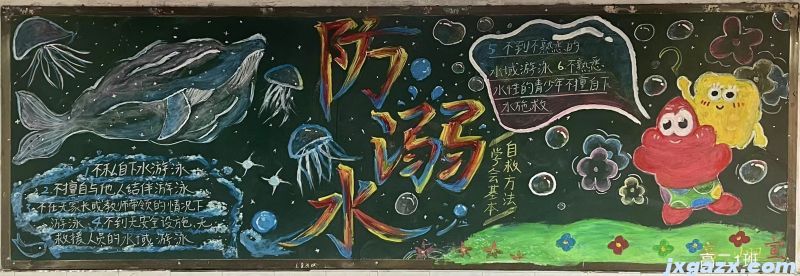 防溺水
1.不私自下水游泳
2.不擅自与他人结伴游泳
3.不在无家长或教师带领的情况下
游泳 4.不到无安全设施、无
救援人员的水域游泳
5.不到不熟悉的
水域游泳 6.不熟悉
水性的青少年不擅自下
水施救
自救方法
学会基本
高二1班
jxqazx.com